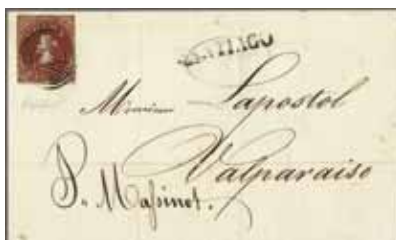 SANTIAGO
Monsieur Lapostol
Valparaiso
P. Massinot.